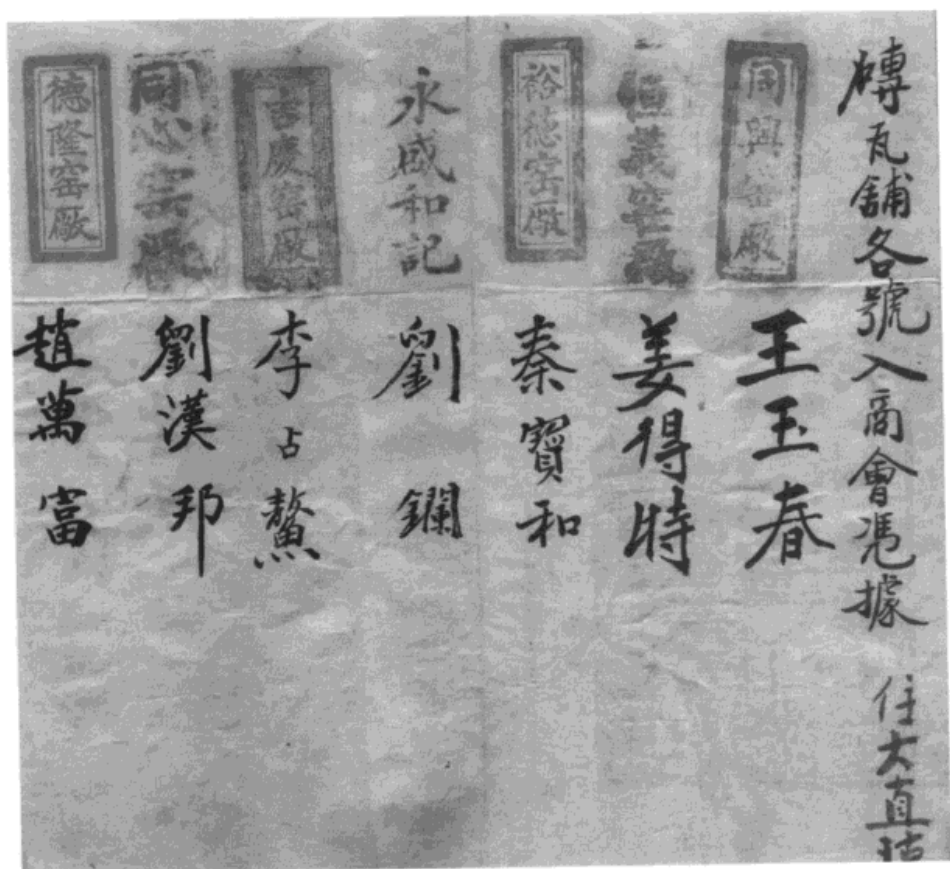 磚瓦舖各號入商會慿據 住大直沽
同興窑廠 王玉春
恒義窑廠 姜得特
裕德窑廠 秦寶和
永盛和記 劉鑭
吉慶窑廠 李占鰲
同心窑廠 劉漢邦
德隆窑廠 趙萬富